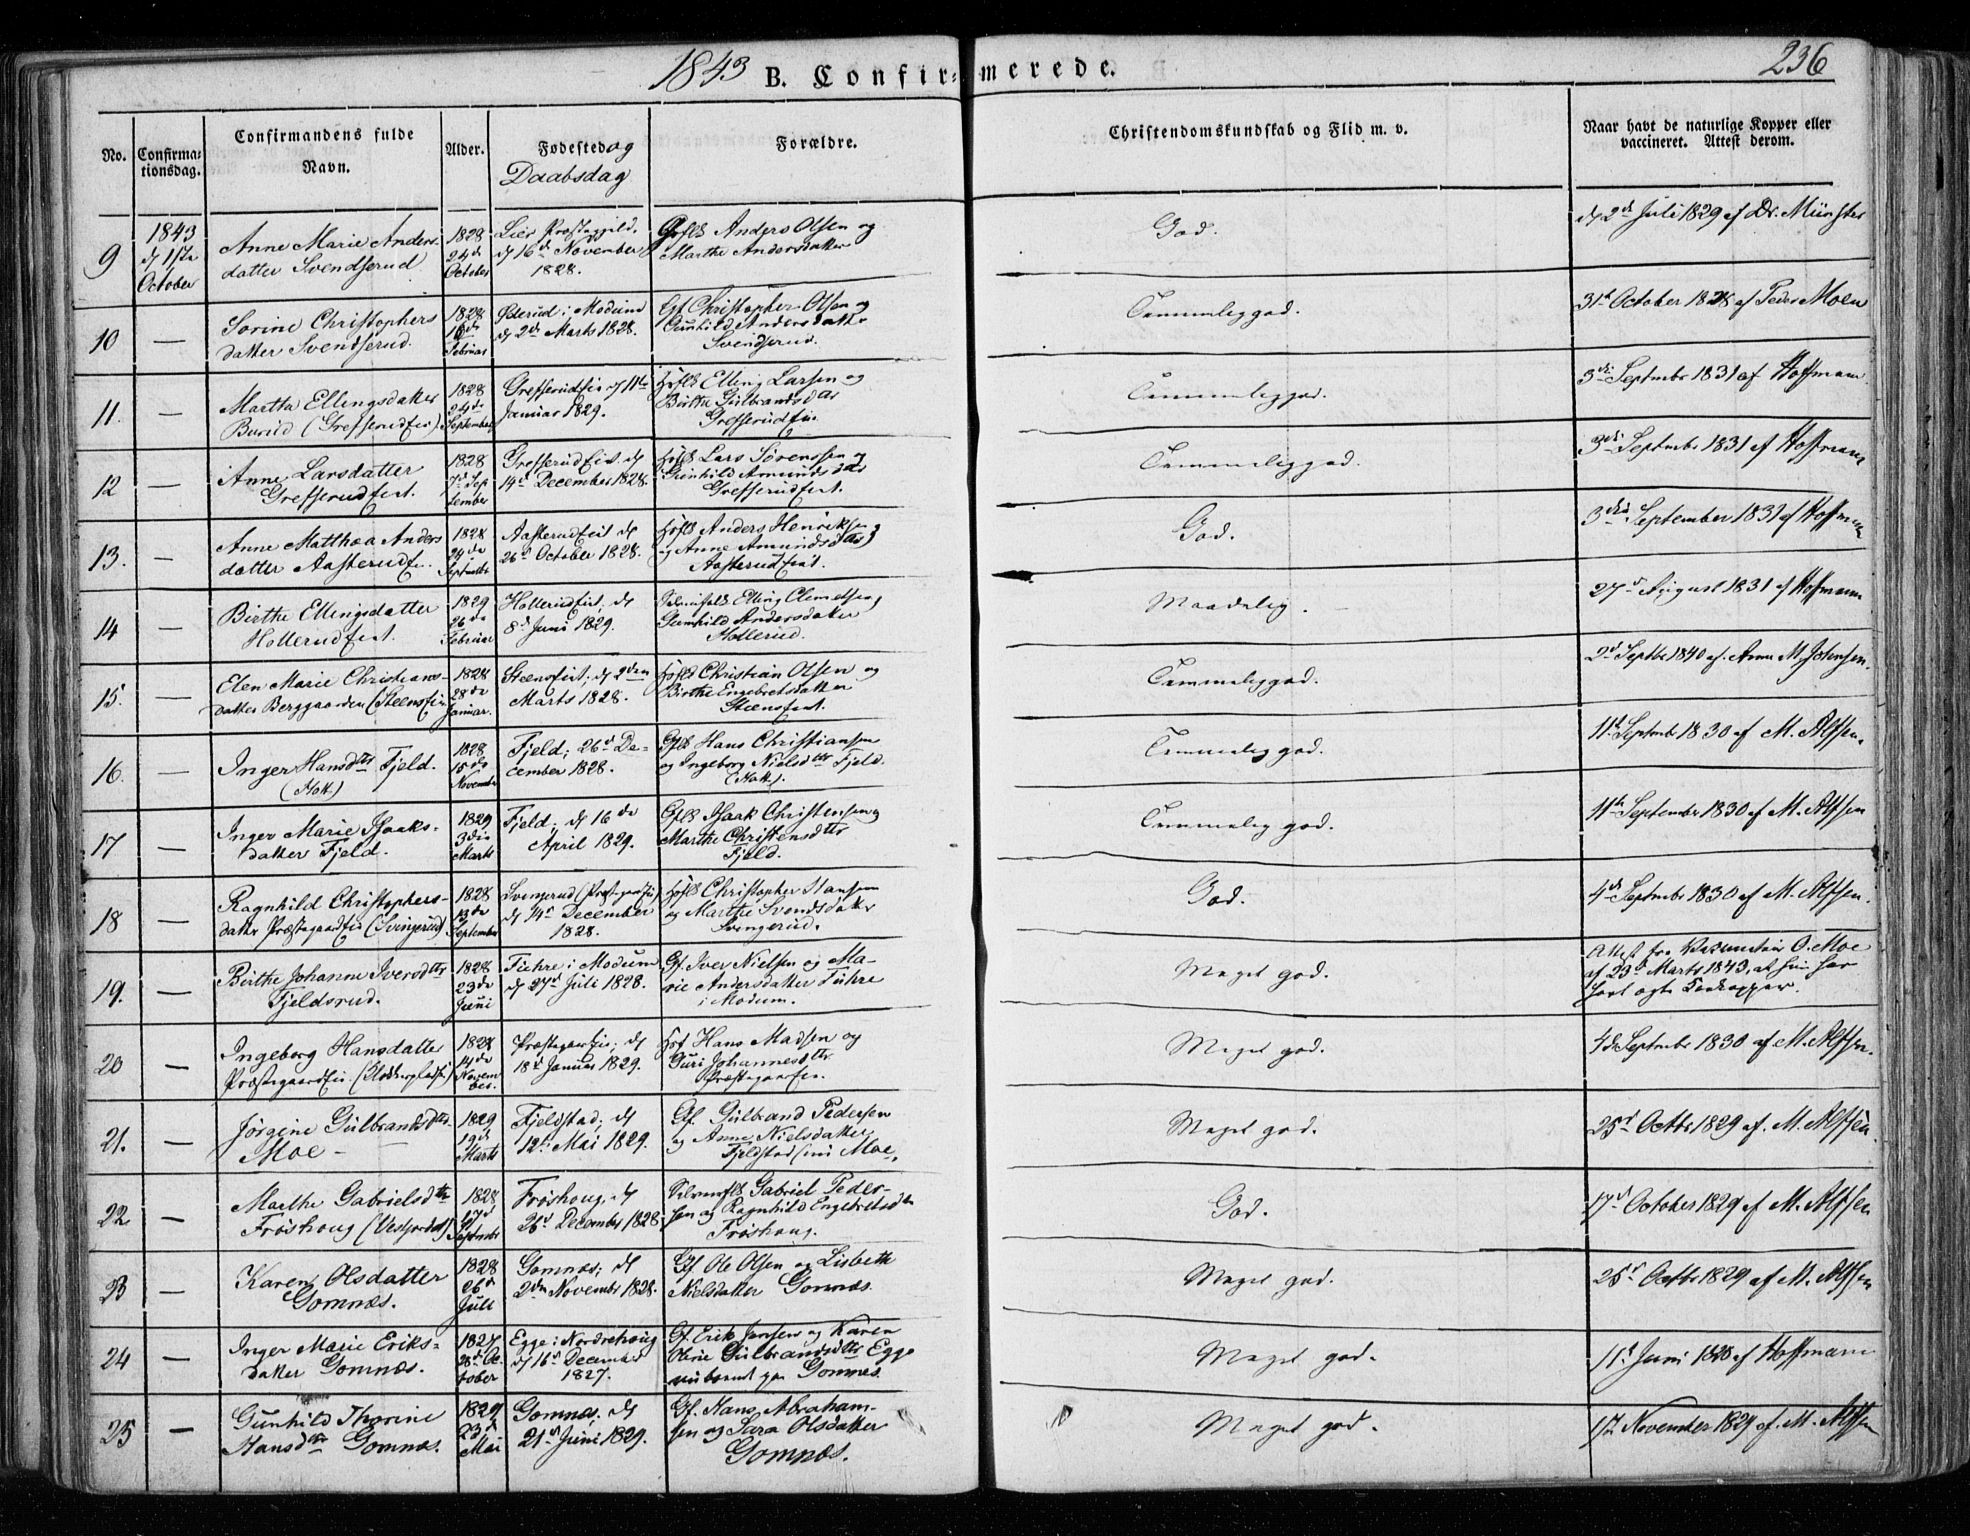 1843 B. Confirmerede. 236
No. Confirmationsdag. Confirmandens fulde Navn. Alder. Fødested og Daabsdag Forældre. Christendomskundskab og Flid m. v. Naar havt de naturlige Kopper eller vaccineret. Attest derom.
9 1843 d 1ste October Anne Marie Andersdatter Svendsrud 1828 24de October Lier Præstegjeld. d 16d November 1828. Anders Olsen og Marthe Andersdatter God. d 2d Juli 1829 af Dr. Münster
10 — Sorine Christophersdatter Svendsrud. 1828 Februar i Modum d 2d Marts 1828. Gf Christopher Olsen og Gunhild Andersdatter Svendsrud. Temmeliggod. 31t October 1828 af Peder Moen
11. — Martha Ellingsdatter Burud (Gresserudeie). 1828 24de September Gresserudeie d 11te Januar 1829. Hösfl Elling Larsen og Birthe Gulbrandsdatr Gresserudeie. Temmeliggod. 3die Septmbr 1831 af Hoffmann
12 — Anne Larsdatter Gresserudeiet. 1828 7d September Gresserudeiet. d 14d December 1828. Lars Sørenssen og Gunhild Amundsdatr Gresserudeiet. Temmeliggod. 3die Septmbr 1831 af Hoffmann
13. — Anne Matthea Andersdatter Aasterudeie. 1828 24de Septmbr Aasterudeiet d 26d October 1828. Anders Henriksen og Anne Amundsdatr Aasterudeiet. God. 3die September 1831 af Hoffmann
14 — Birthe Ellingsdatter Hollerudeiet. 1829 26de Februar Hollerudeiet. d 8d Juni 1829. Elling Clemetsen og Gunhild Andersdatter Hollerud. Maadelig. 27d August 1831 af Hoffmann
15. — Elen Marie Christiansdatter Berggaarden (Steenseie 1828 28de Januar. Steenseiet, d 2den Marts 1828. Christian Olsen og Birthe Engebretsdatter Steenseiet. Temmeliggod. 2d Septbr 1840 af. Anne M. Johnsen.
16. — Inger Hansdttr Fjeld. (Hok) 1828 15de November Fjeld; 26d December 1828. Hans Christiansen og Ingeborg Nielsdttr Fjeld. (Hok). Temmelig god. 11t Septmbr 1830 af M. Alfsen.
17 — Inger Marie Isaaksdatter Fjeld. 1829 3die Marts Fjeld; d 16de April 1829. Isaak Christensen og Marthe Christensdttr Fjeld. Temmelig god. 11te September 1830 af M. Alfsen
18 — Ragnhild Christophersdatter Præstegaardeie (Svingerud) 1828 13de September Svingerud (Præstegaardeie) d 14d December 1828. Christopher Hansen og Marthe Svendsdatter Svingerud. God. 4de Septmbr 1830 af M. Alfsen.
19. — Birthe Johanne Iversdttr Fjeldsrud. 1828 23de Juni i Modum, d 27d Juli 1828. Gf. Iver Nielsen og Marie Andersdatter i Modum. Meget god. Attest fra O. Moe af 23d Marts 1843, at hun har havt
20 — Ingeborg Hansdatter Præstegaardeie. 1828 14de November. Præstegaardeie; d 18d Januar 1829. Hans Madsen og Guri Johannesdttr Præstegaardeie. Meget god. 4de Septmbr 1830 af M. Alfsen.
21. — Jørgine Gulbrandsdttr. Moe — 1829 19d Marts Fjeldstad; d 12te Mai 1829. Gf. Gulbrand Pedersen og Anne Nielsdatter Fjeldstad (nu Moe. Meget god. 25d Octbr 1829 af. M. Alfsen.
22 — Marthe Gabrielsdttr Frøshoug 1828 17d Septmbr Frøshoug, d 26d December 1828. Gabriel Pedersen og Ragnhild Engebretsdtr Frøshoug. God. 17d October 1829 af M. Alfsen
23 — Karen Olsdatter Gomnæs. 1828 26d Juli Gomnæs; d 2den Novembr 1828. Gf. Ole Olsen og Lisbeth Nielsdatter Gomnæs. Meget god. 25d Octbr 1829 af M. Alfsen
24 — Inger Marie Eriksdatter Gomnæs. 1827 28d October Egge i Nordrehoug d 16d December 1827. Gf. Erik Jensen og Karen Oline Gulbrandsdttr Egge Gomnæs. Meget god. 11t Juni 1828 af Hoffmann
25 — Gunhild Thorine Hansdttr Gomnæs. 1829 23d Mai Gomnæs, d 21d Juni 1829. Gf. Hans Abrahamsen og Sara Olsdatter Gomnæs. Meget god. 17d November 1829 af. M. Alfsen